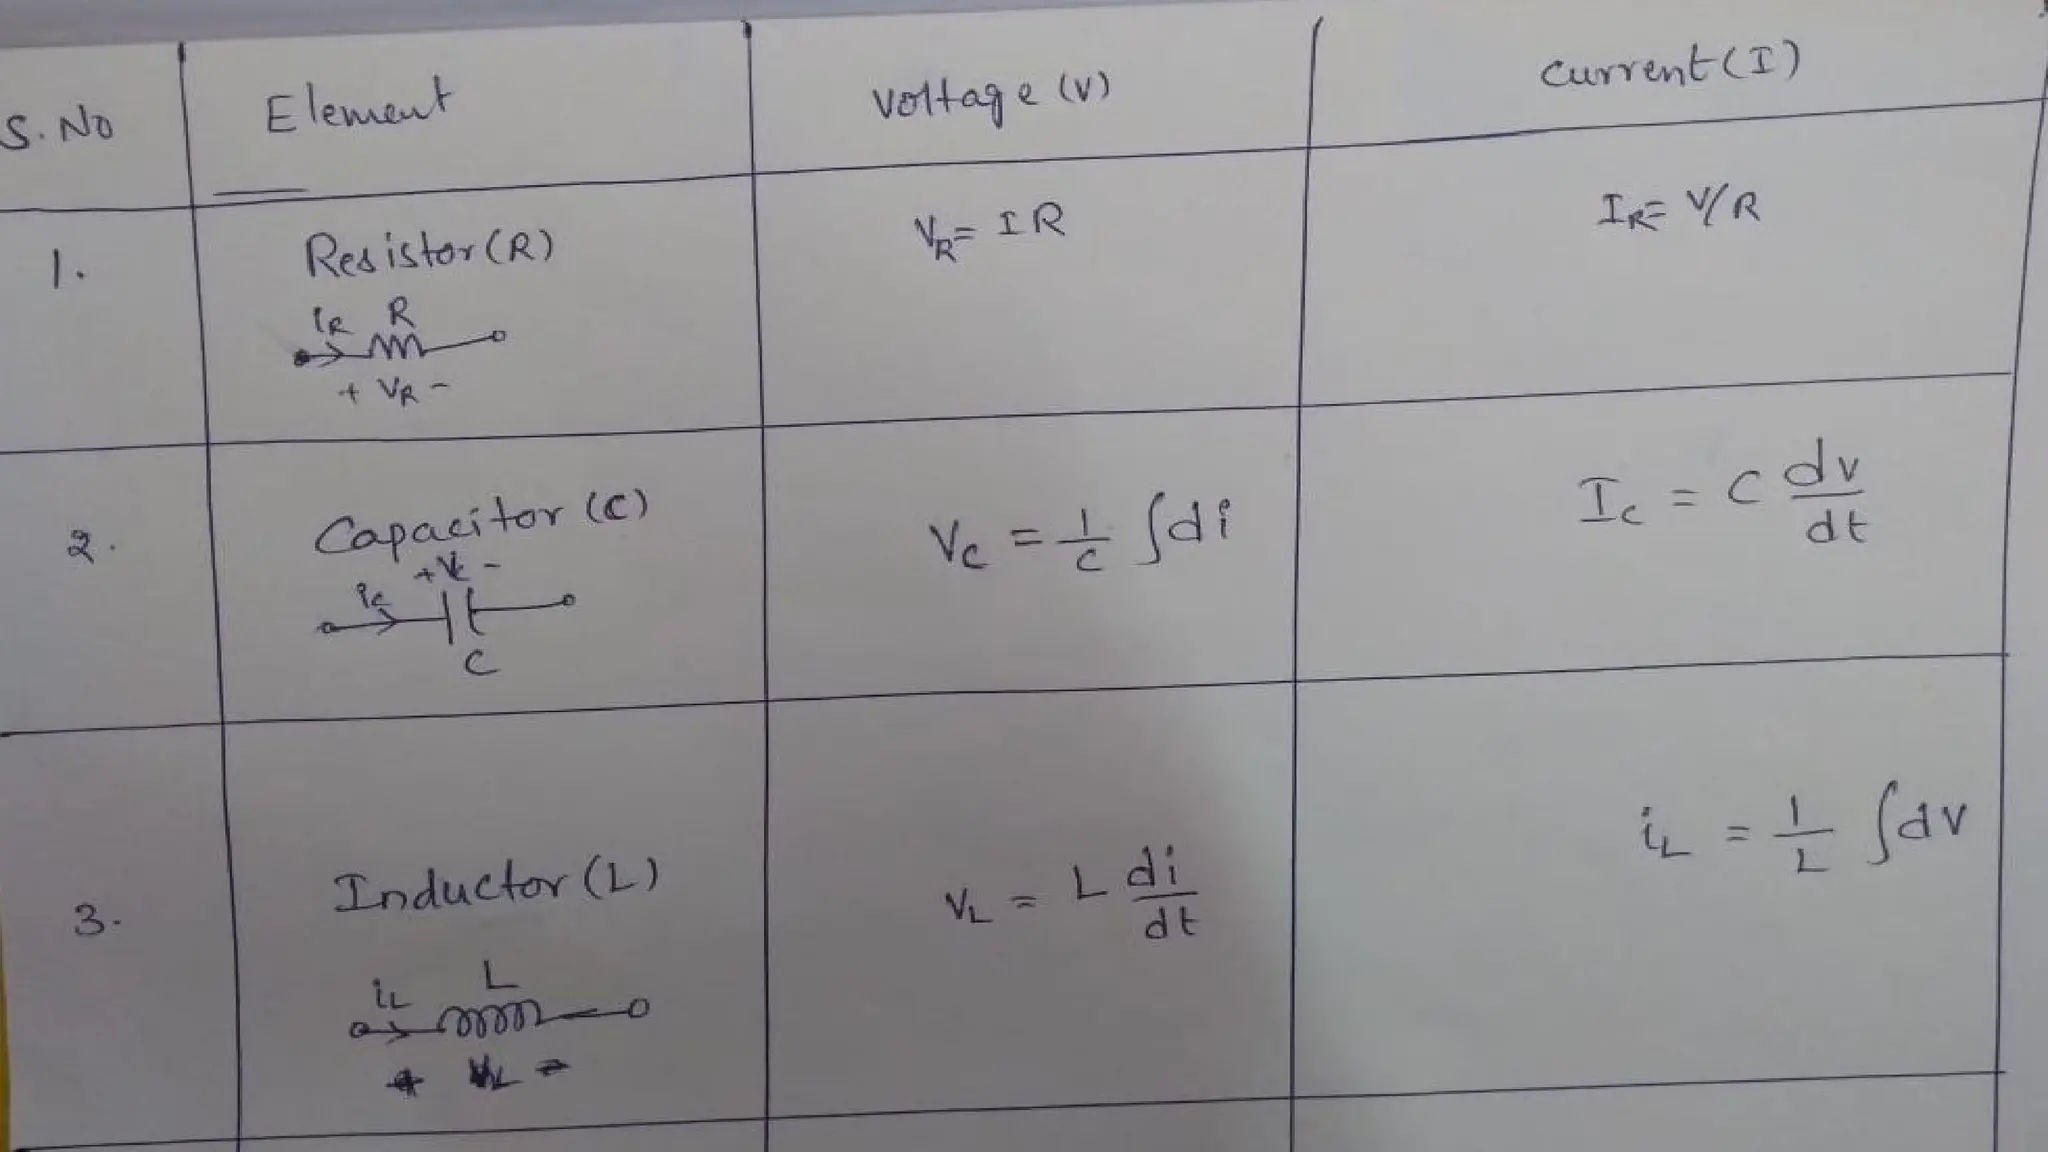 S. No Element Voltage (V) Current (I)
1. Resistor (R) V_R = I R I_R = V/R
i_R R
+ V_R -
2. Capacitor (C) V_C = 1/C ∫di I_C = C dv/dt
+ V_C -
i_C
C
3. Inductor (L) V_L = L di/dt i_L = 1/L ∫dv
i_L L
+ V_L -